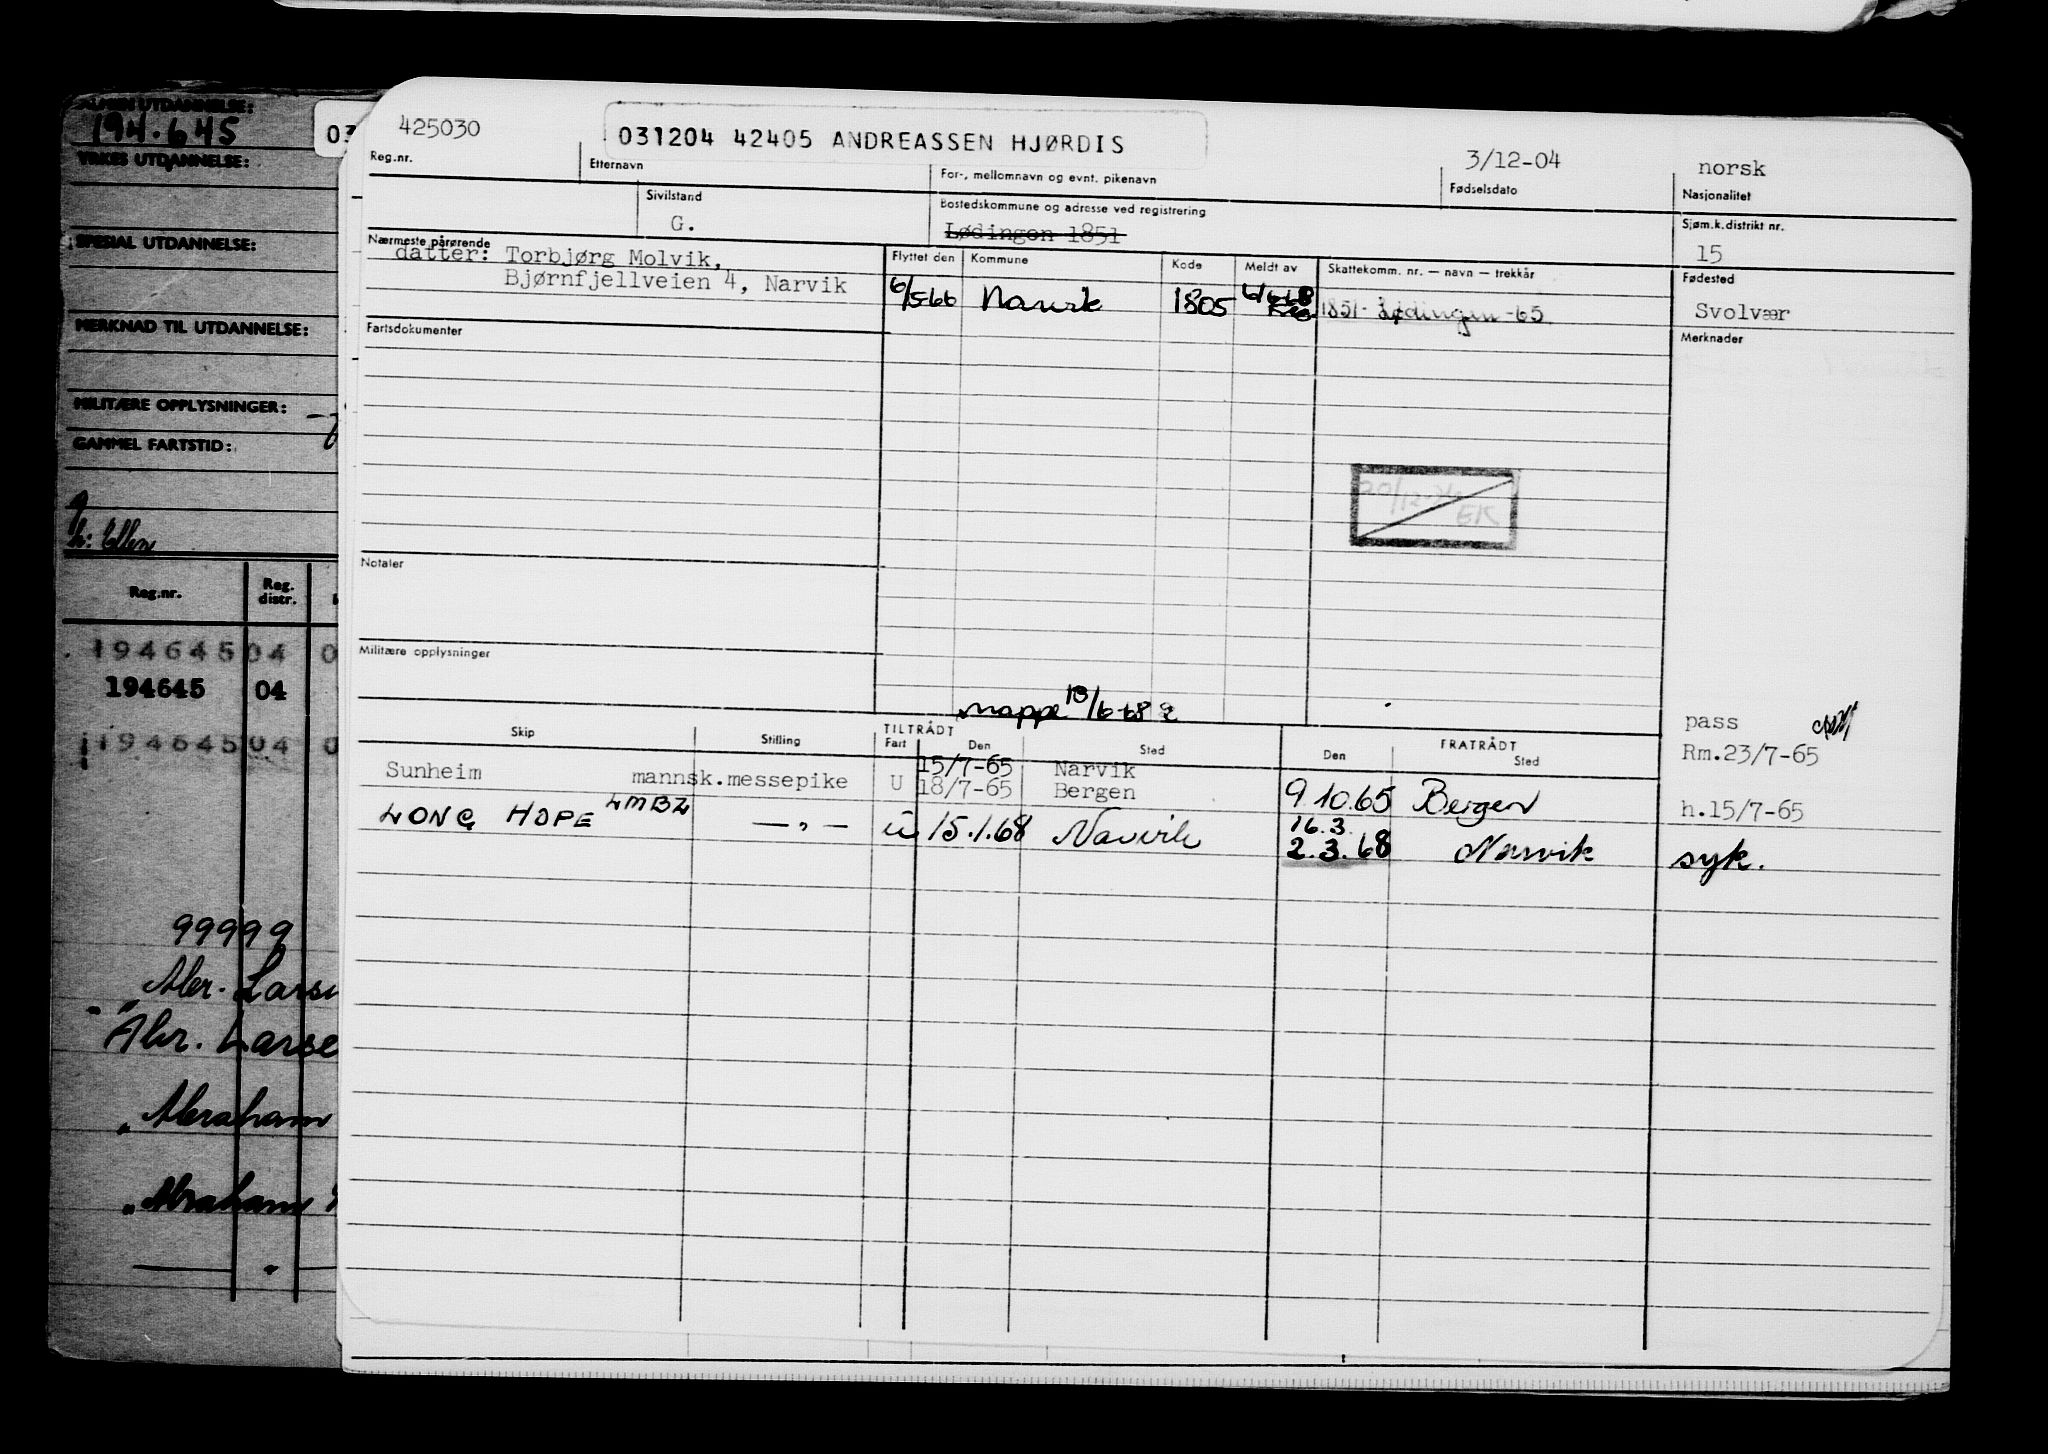 ALMEN UTDANNELSE:
194.645
YRKES UTDANNELSE:
SPESIAL UTDANNELSE:
MERKNAD TIL UTDANNELSE:
MILITÆRE OPPLYSNINGER:
GAMMEL FARTSTID:
Reg.nr.
Reg. distr.
194645 04 0
194645 04
194645 04 0
99999
Abr. Larse
Abraham
Abraham
03
425030
031204 42405 ANDREASSEN HJØRDIS
3/12-04
norsk
Reg.nr.
Etternavn
For-, mellomnavn og evnt. pikenavn
Fødselsdato
Nasjonalitet
Sivilstand
G.
Bostedskommune og adresse ved registrering
Lødingen 1851
Sjøm.k.distrikt nr.
15
Nærmeste pårørende
datter: Torbjørg Molvik,
Bjørnfjellveien 4, Narvik
Flyttet den
Kommune
Kode
Meldt av
Skattekomm. nr. — navn — trekkår
Fødested
6/5-66 Narvik 1805
1851- Lødingen -65
Svolvær
Fartsdokumenter
Merknader
EK
Notater
Militære opplysninger
mappe 13/6-68
pass
Skip
Stilling
TILTRÅDT
Fart
Den
Sted
FRATRÅDT
Den
Sted
Rm.23/7-65
Sunheim mannsk.messepike U 15/7-65 Narvik
18/7-65 Bergen 9.10.65 Bergen h.15/7-65
LONG HOPE LMBZ —"— u 15.1.68 Narvik 16.3.
2.3.68 Narvik syk.